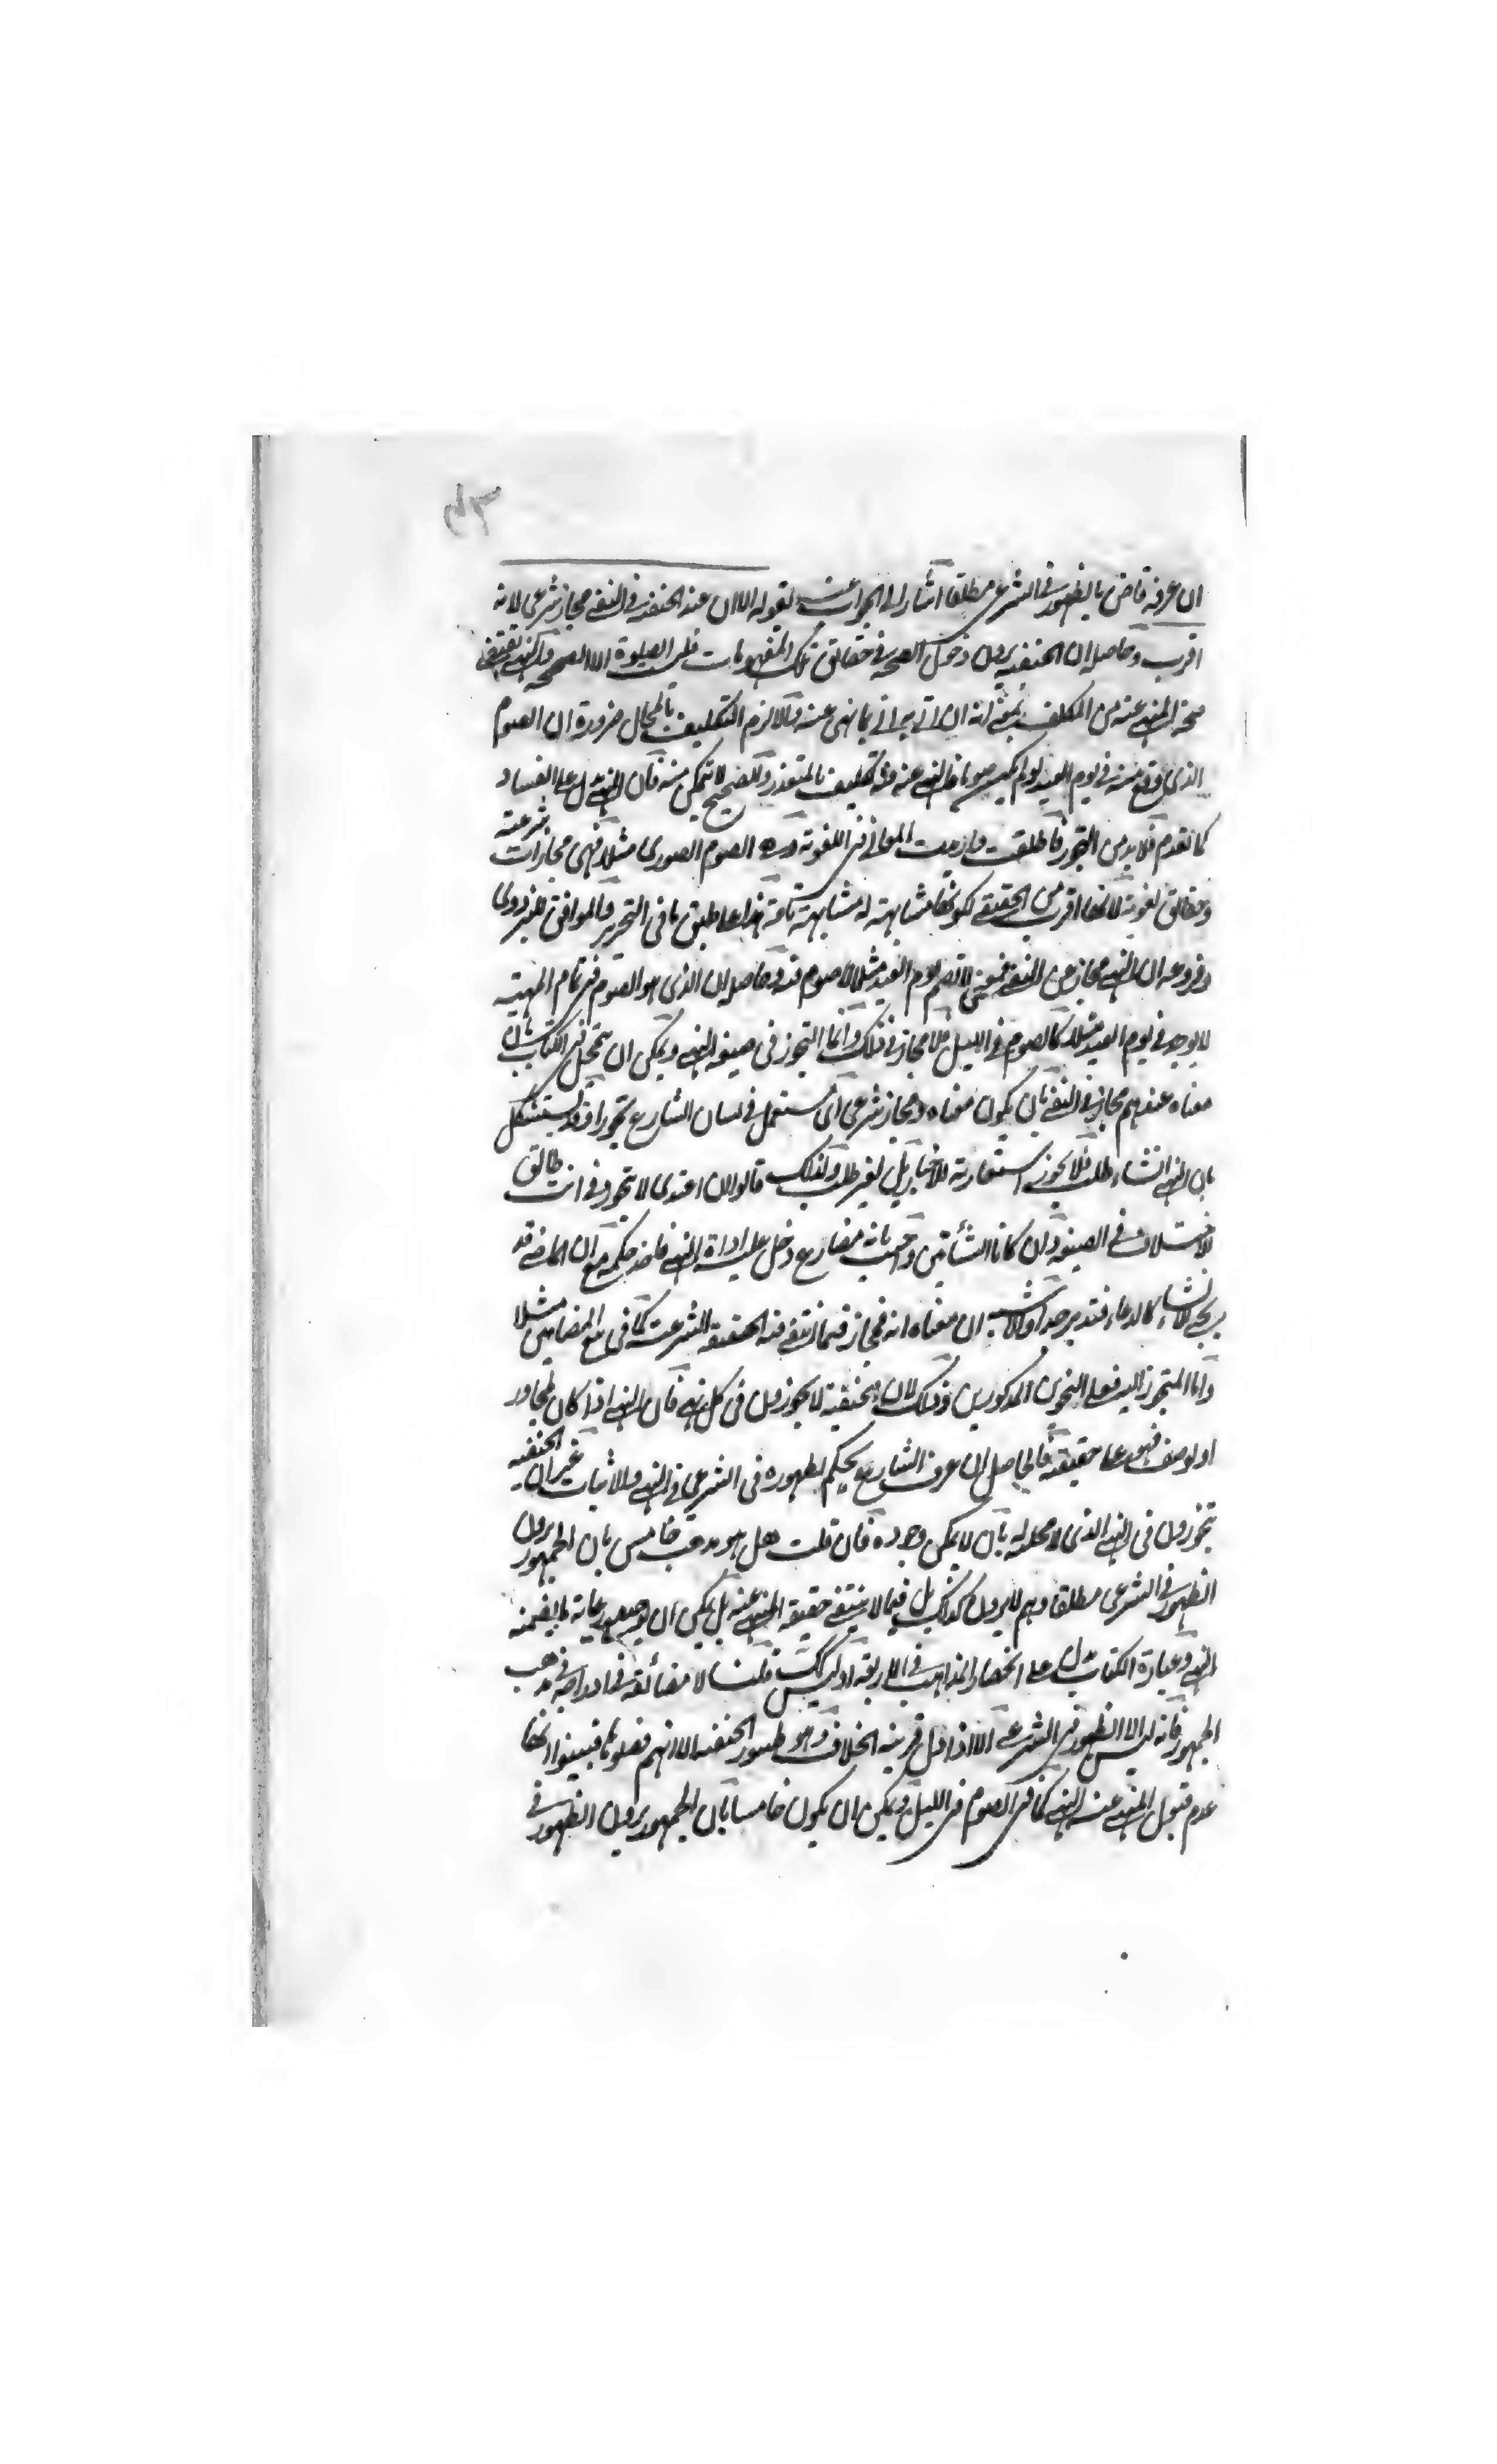 ٤٣
ان عرفه قاض بالظهور في الشرعي مطلقا اشار الى الجواب عنه بقوله الا ان عند الحنفية في النهي مجاز شرعي لانه
اقرب وحاصله ان الحنفية يرون دخول الصحة في حقائق تلك المفهومات فليست الصلوة الا الصحيحة والنهي يقتضي
صحة المنهي عنه من المكلف بمعنى انه ان اتى به اتى بما نهى عنه والا لزم التكليف بالمحال ضرورة ان الصوم
الذي وقع منه في يوم العيد لو لم يكن صوما فالنهي عنه تكليف بالمتعذر والصحيح لا تمكن منه فان النهي يدل على الفساد
كما تقدم فلا بد من التجوز فاطلقت واريدت المعاني اللغوية الصوم الصوري مثلا فهي مجازات شرعية
وحقائق لغوية لانها اقرب من الحقيقي لكونها مشابهة له مشابهة تامة هذا على طبق ما في التحرير والموافق للبزدوي
وفروعه ان النهي مجاز عن النفي فمعنى لا تصم يوم العيد مثلا لا صوم فيه وحاصله ان الذي هو الصوم في تمام المهية
لا يوجد في يوم العيد مثلا كالصوم في الليل فلا مجاز في ذلك وانما التجوز في صيغة النهي ويمكن ان يتحمل الكتاب بان
معناه عندهم مجاز في النفي بان يكون معناه مجاز شرعي اي مستعمل في لسان الشارع تجوزا وقد يستشكل
بان النهي انشاء طلب فلا يجوز استعارته للاخبار بل لغير طلب ولذلك قالوا ان اعتدي لا تجوز في انت طالق
لاختلاف في الصيغة وان كانا انشائين واجيب بانه مضارع دخل عليه اداة النهي فاخذ حكمه مع ان الماضي قد
يجيء للانشاء كالدعاء فتدبر جدا والاشبه ان معناه انه مجاز فيما انتفى فيه الحقيقة الشرعية كما في بيع المضامين مثلا
واما المتجوز اليه فعلى النحوين المذكورين وذلك لان الحنفية لا يجوزون في كل نهي فان النهي اذا كان لمجاور
او لوصف فهو على حقيقته فالحاصل ان عرف الشارع يحكم بظهوره في الشرعي في النهي والاثبات غير ان الحنفية
يتجوزون في النهي الذي لا محلية له بان لا يمكن وجوده فان قلت هل هو مذهب خامس بان الجمهور يرون
الظهور في الشرعي مطلقا وهم لا يرون كذلك بل فيما لا ينتفي حقيقة المنهي عنه بل يمكن ان يوجد رعاية لما يضمنه
النهي وعبارة الكتاب تدل على انحصار المذاهب في الاربعة او ليس كذلك قلنا لا مضائقة في ادراجه في مذهب
الجمهور فانه ليس الا الظهور في الشرعي الا اذا دل قرينة الخلاف وهو طور الحنفية الا انهم فصلوها فبينوا انها
عدم قبول المنهي عنه النهي كما في الصوم في الليل ويمكن ان يكون خامسا بان الجمهور يرون الظهور في